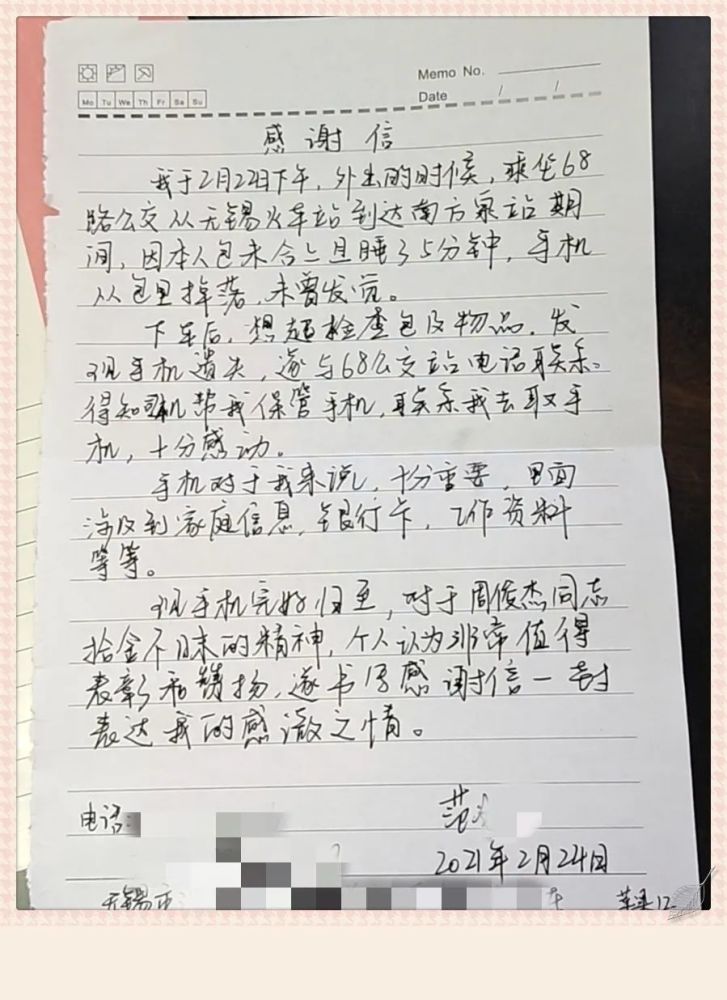 Memo No.
Mo Tu We Th Fr Sa Su
Date / /
感谢信
我于2月22日下午，外出的时候，乘坐68
路公交从无锡火车站到达南方泉站期
间，因本人包未合上且睡了5分钟，手机
从包里掉落，未曾发觉。
下车后，想起检查包及物品，发
现手机遗失，遂与68公交站电话联系。
得知司机帮我保管手机，联系我去取手
机，十分感动。
手机对于我来说，十分重要，里面
涉及到家庭信息，银行卡，工作资料
等等。
现手机完好归至，对于周俊杰同志
拾金不昧的精神，个人认为非常值得
表彰和赞扬，遂书写感谢信一封
表达我的感激之情。
电话:
2021年2月24日
无锡市